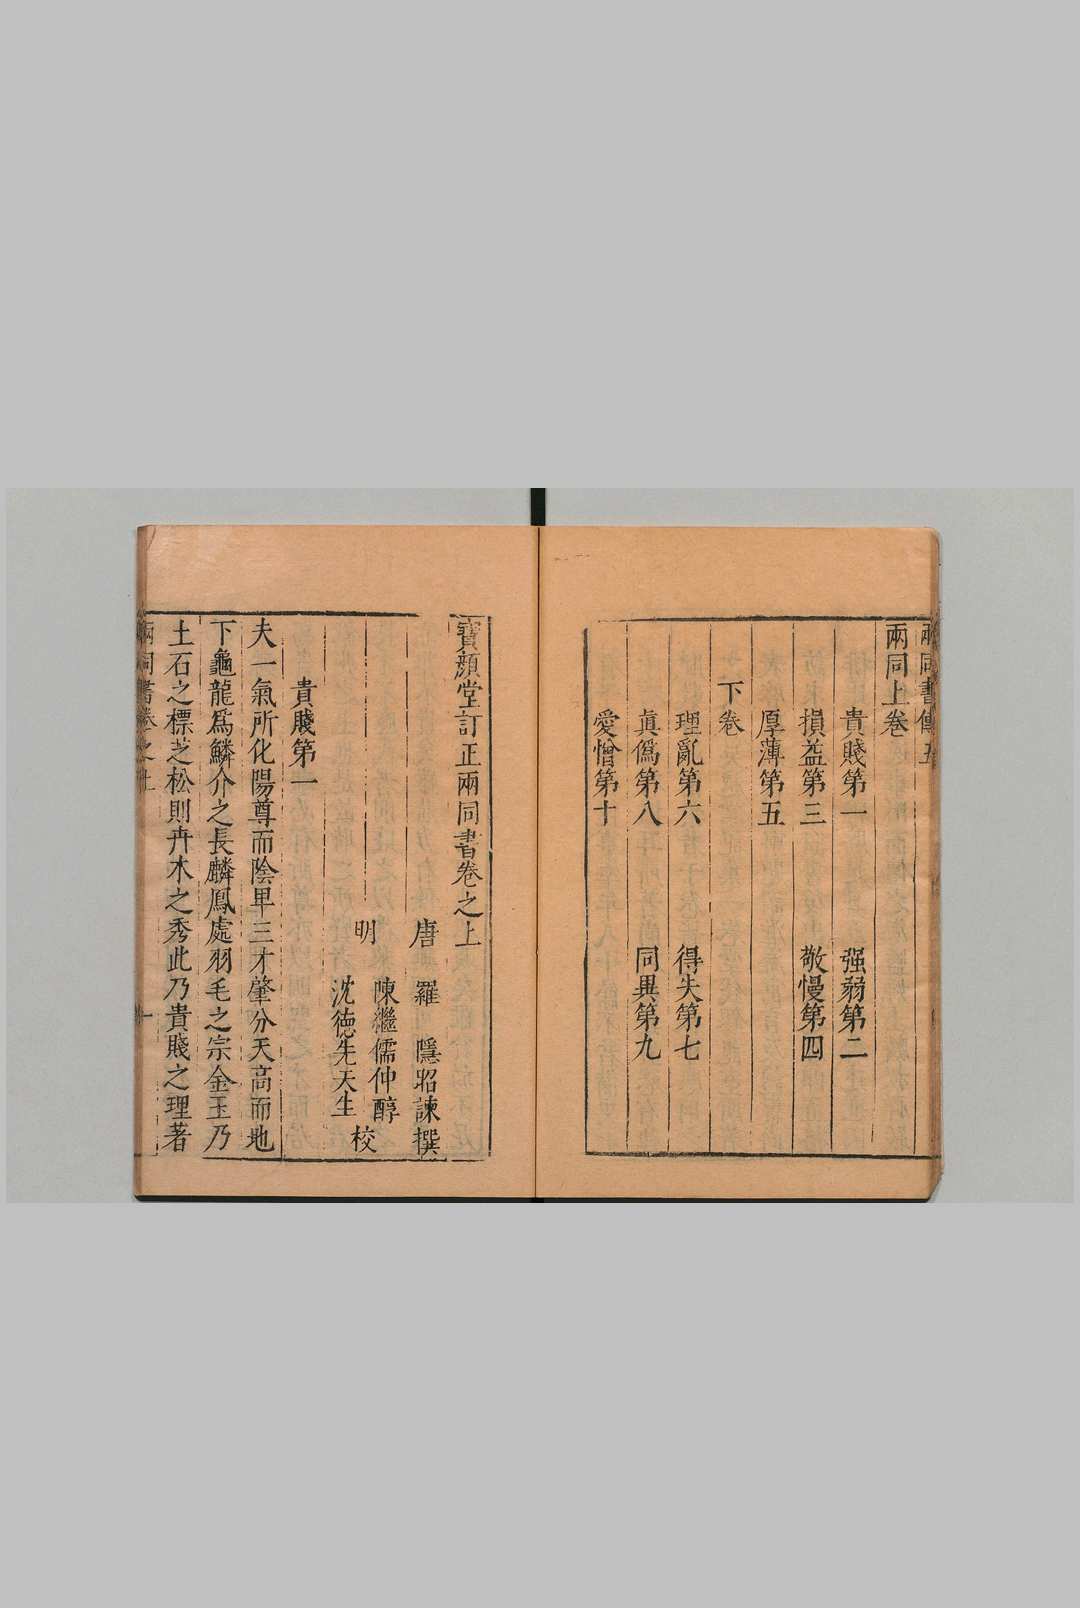 兩同上卷
貴賤第一 强弱第二
損益第三 敬慢第四
厚薄第五
下卷
理亂第六 得失第七
眞僞第八 同異第九
愛憎第十
寶顏堂訂正兩同書卷之上
唐 羅 隱昭諫撰
明 陳繼儒仲醇 校
沈德先天生
貴賤第一
夫一氣所化陽尊而陰卑三才肇分天高而地
下龜龍爲鱗介之長麟鳳處羽毛之宗金玉乃
土石之標芝松則卉木之秀此乃貴賤之理著
兩同書卷之上 一